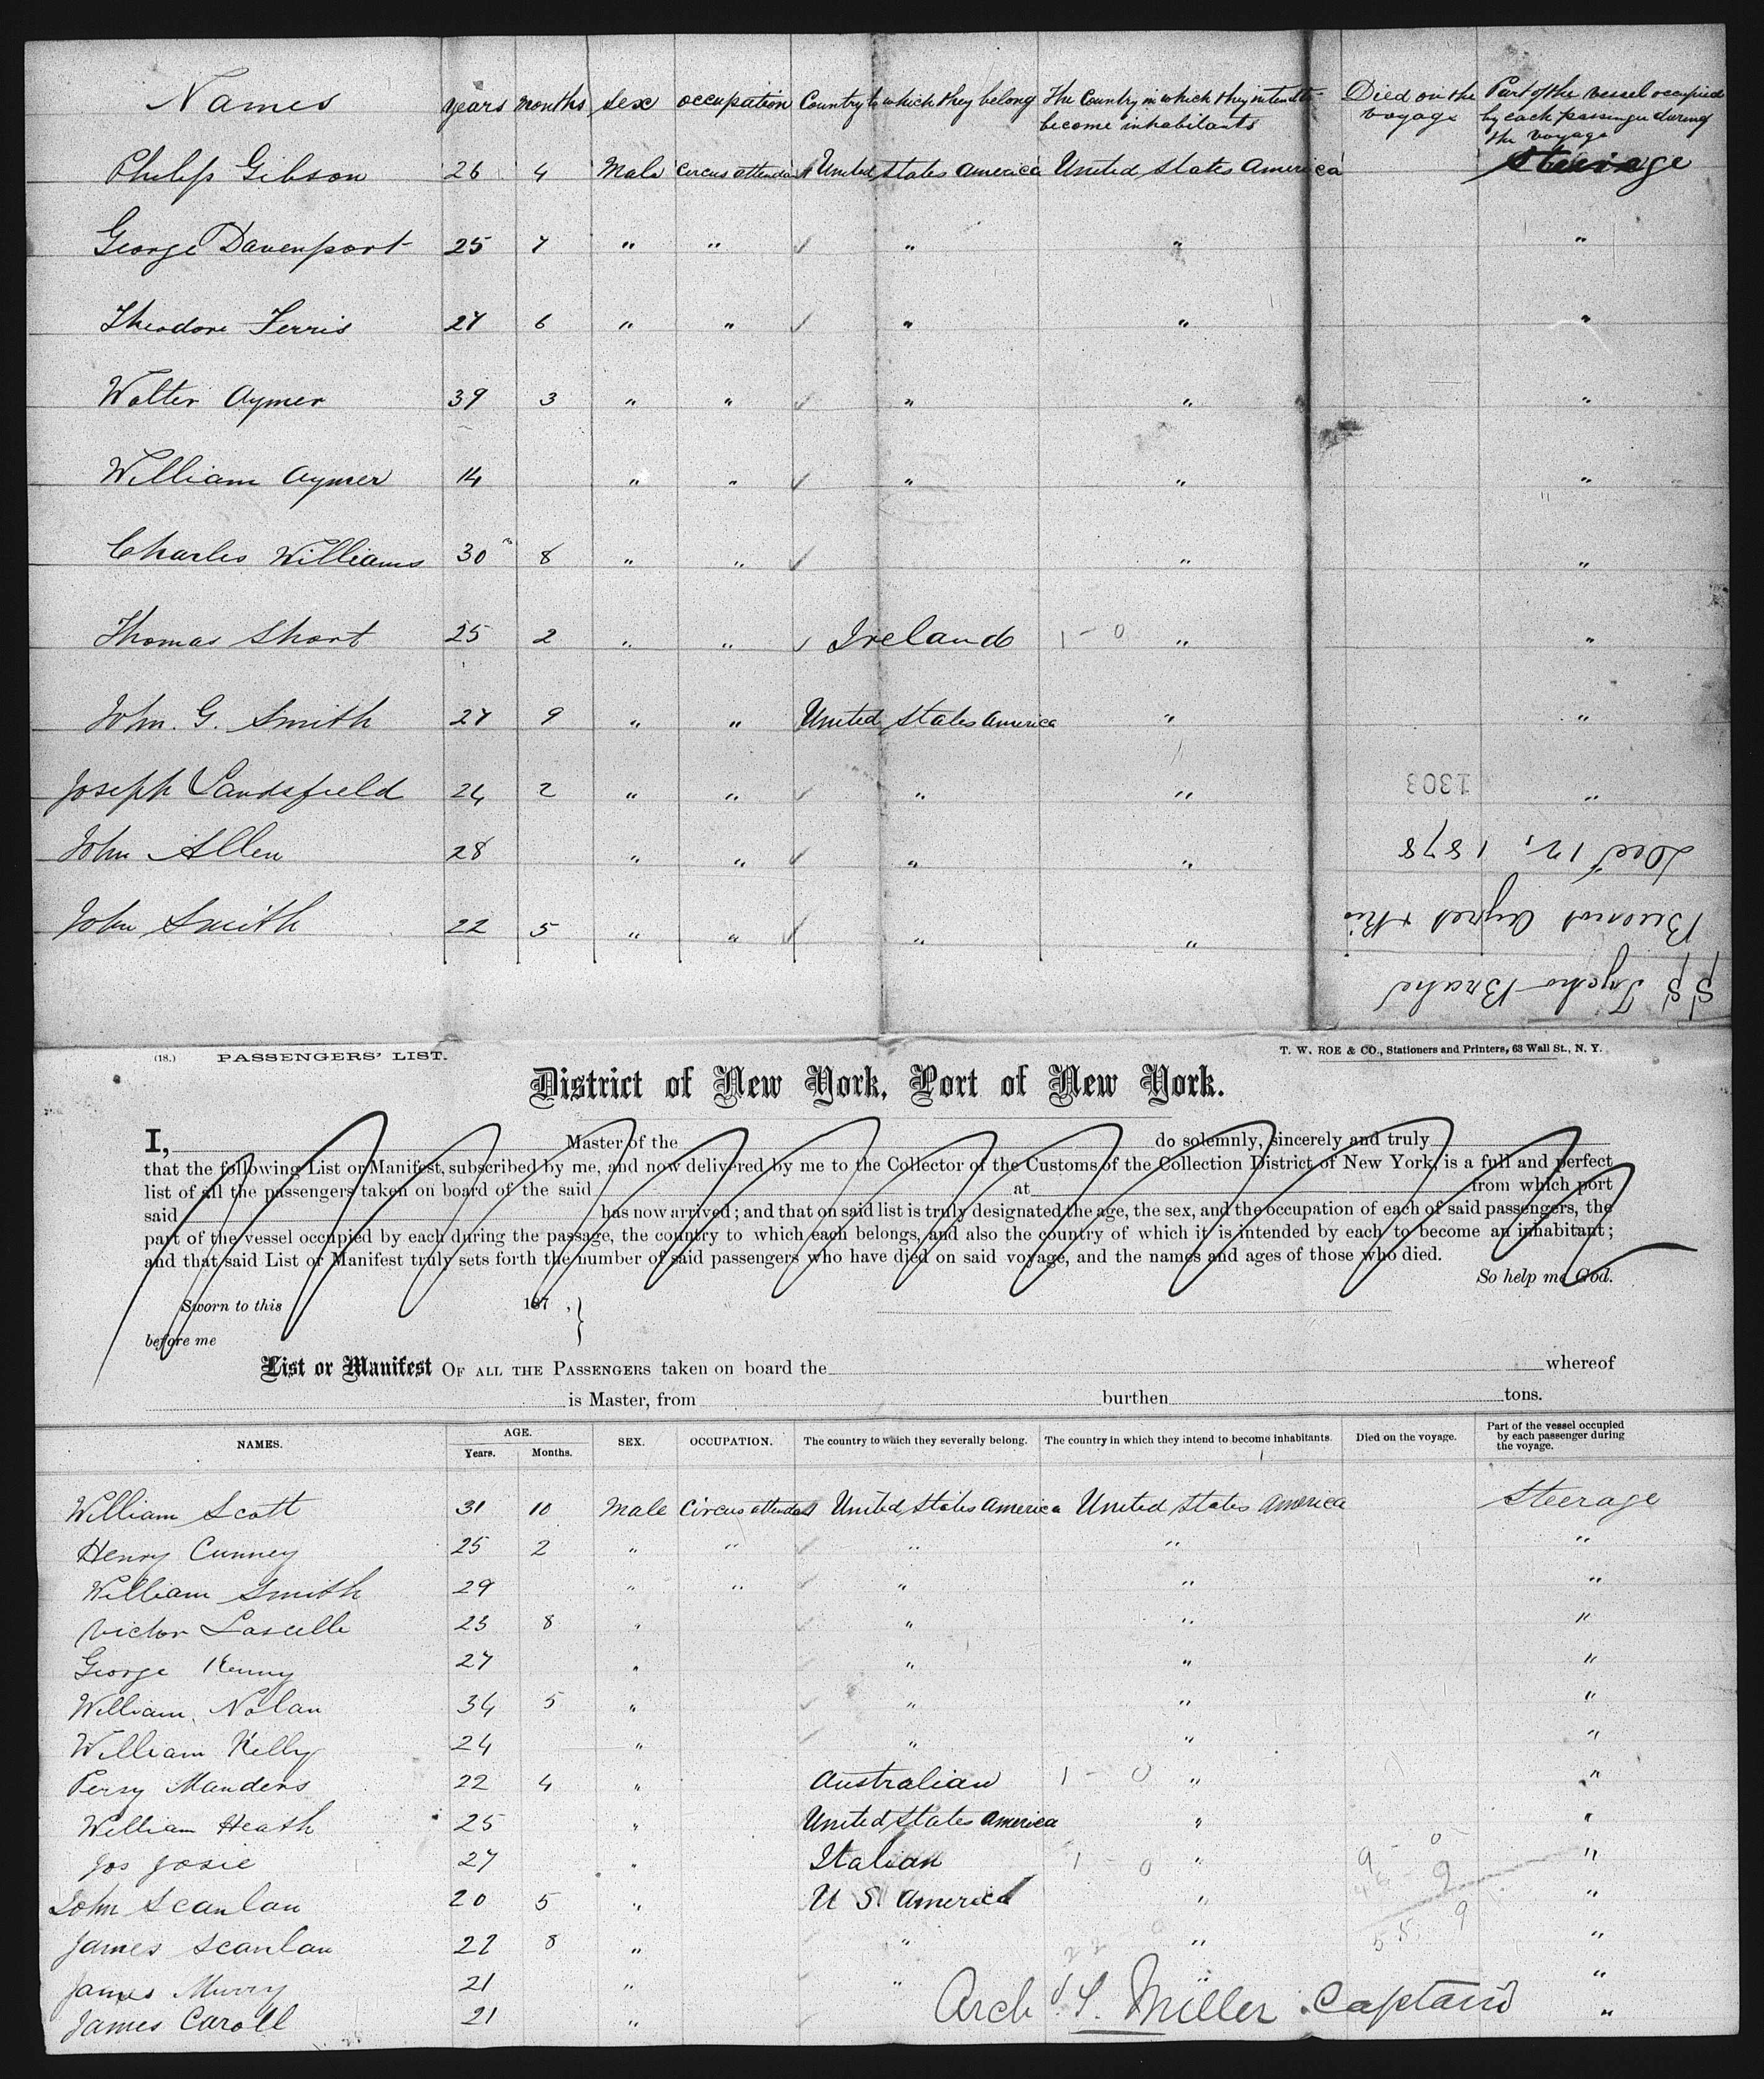 Names years months sex occupation Country to which they belong The Country in which they intend to become inhabitants Died on the voyage Part of the vessel occupied by each passenger during the voyage
Philip Gibson 26 4 Male Circus attendant United States America United States America Steerage
George Davenport 25 7 " " " " "
Theodore Ferris 27 6 " " " " "
Walter Aymer 39 3 " " " " "
William Aymer 14 " " " " "
Charles Williams 30 8 " " " "
Thomas Short 25 2 " " Ireland 1 - 0 " "
John. G. Smith 27 9 " " United States America " "
Joseph Sandsfield 24 2 " " " " "
John Allen 28 " " " "
John Smith 22 5 " " " "
S/S Tycho Brahe
Buenos Ayres & Rio
Dec 12, 1878
1303
(18.) PASSENGERS' LIST. T. W. ROE & CO., Stationers and Printers, 63 Wall St., N. Y.
District of New York, Port of New York.
I, Master of the do solemnly, sincerely and truly
that the following List or Manifest, subscribed by me, and now delivered by me to the Collector of the Customs of the Collection District of New York, is a full and perfect
list of all the passengers taken on board of the said at from which port
said has now arrived; and that on said list is truly designated the age, the sex, and the occupation of each of said passengers, the
part of the vessel occupied by each during the passage, the country to which each belongs, and also the country of which it is intended by each to become an inhabitant;
and that said List or Manifest truly sets forth the number of said passengers who have died on said voyage, and the names and ages of those who died.
So help me God.
Sworn to this 187 , }
before me
List or Manifest OF ALL THE PASSENGERS taken on board the whereof
is Master, from burthen tons.
NAMES. AGE. Years. Months. SEX. OCCUPATION. The country to which they severally belong. The country in which they intend to become inhabitants. Died on the voyage. Part of the vessel occupied by each passenger during the voyage.
William Scott 31 10 Male Circus attendant United States America United States America Steerage
Henry Cunney 25 2 " " " " "
William Smith 29 " " " " "
Victor Lascelle 23 8 " " " "
George Kenny 27 " " " "
William Nolan 34 5 " " " "
William Kelly 24 " " " "
Percy Manders 22 4 " Australian 1 - 0 " "
William Heath 25 " United States America " "
Jos Josie 27 " Italian 1 - 0 " "
John Scanlan 20 5 " U S. America " "
James Scanlan 22 8 " " " "
James Murry 21 " " " "
James Caroll 21 " "
Arch'd. S. Miller Captain